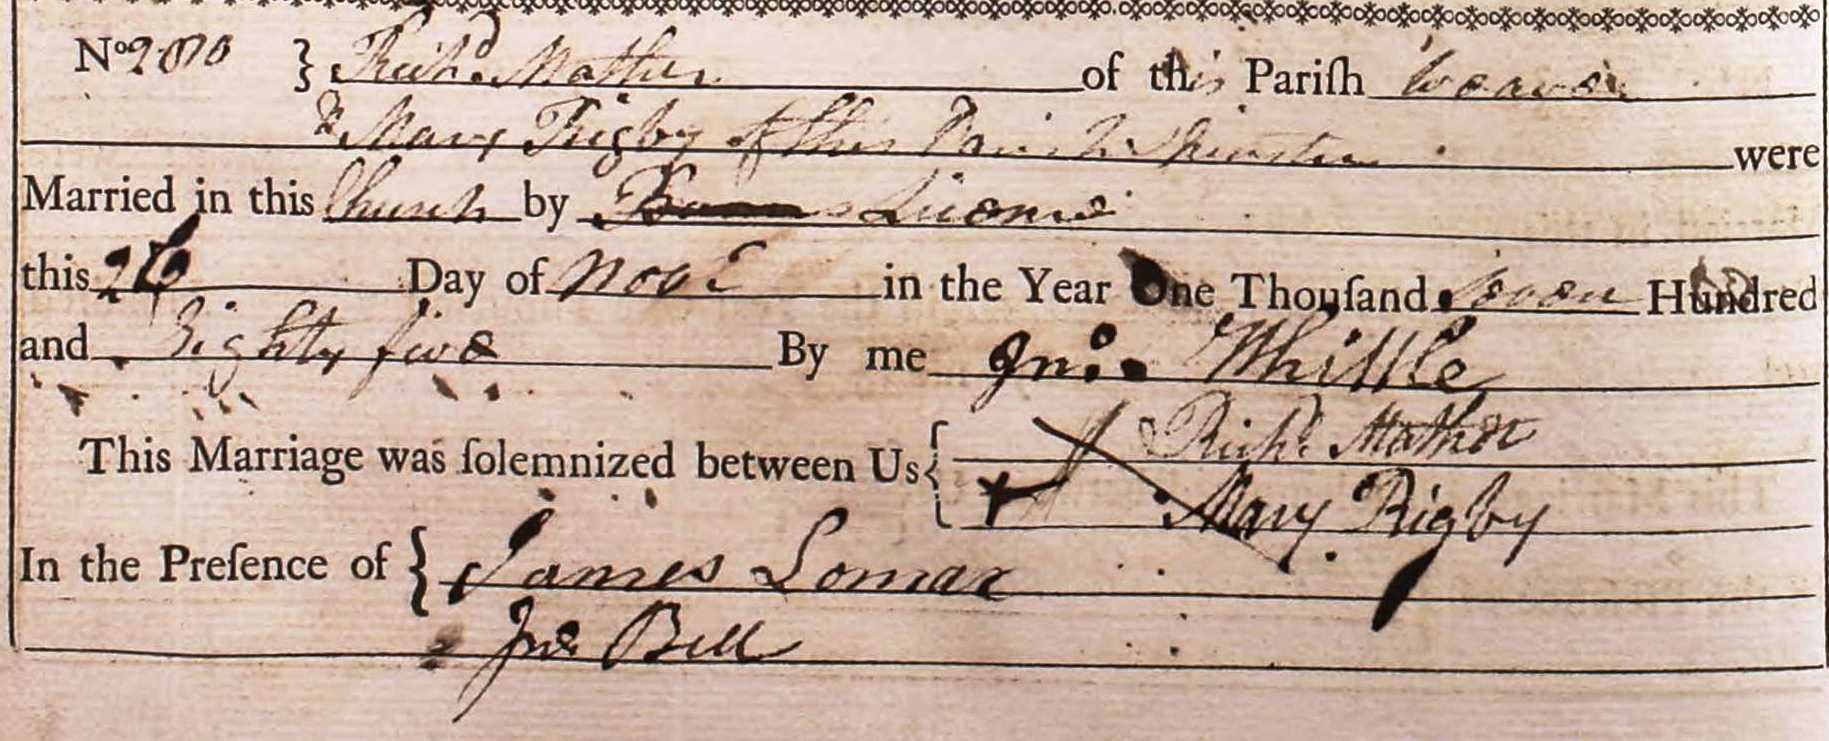 No 2810 } Richd. Mather of this Pariſh Weaver
& Mary Rigby of this Parish Spinster were
Married in this Church by Banns Licence
this 26 Day of Novr in the Year One Thouſand Seven Hundred
and Eighty five By me Jno. Whittle
This Marriage was ſolemnized between Us { Richd. Mather
+ Mary Rigby
In the Preſence of { James Lomax
Jno. Bell